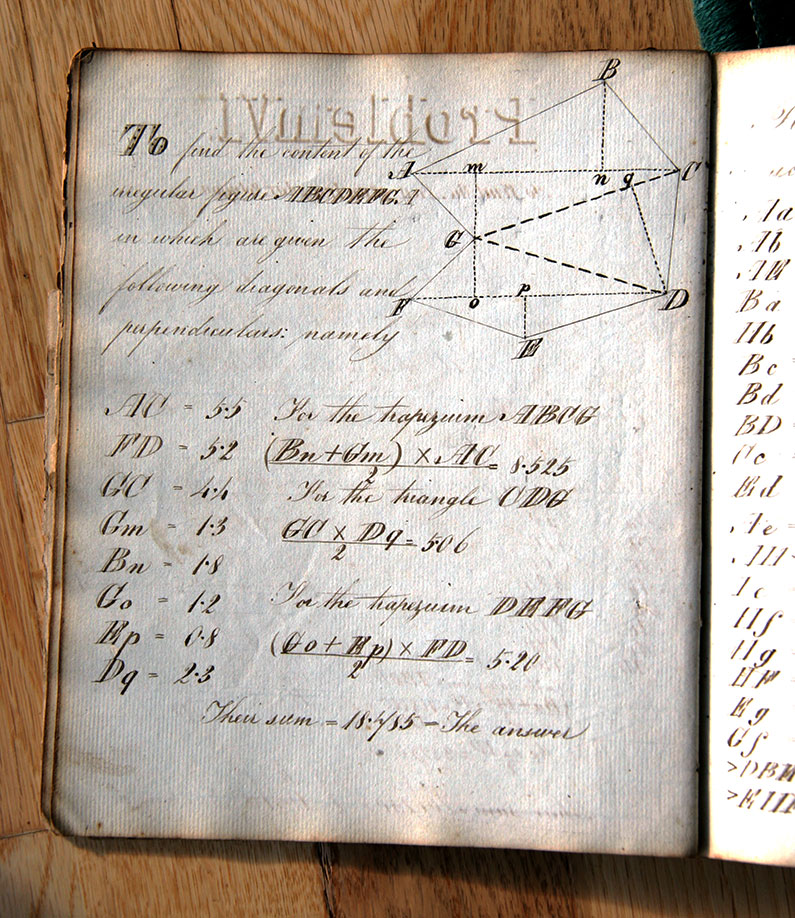 Problem VI
To find the content of the
irregular figure ABCDEFGA
in which are given the
following diagonals and
perpendiculars: namely
B
A m n q C
G
F o p D
E
AC = 5.5 For the trapezium ABCG
FD = 5.2 (Bn + Gm) × AC = 8.525
2
GC = 4.4 For the triangle CDG
Gm = 1.3 GC × Dq = 506
2
Bn = 1.8
Go = 1.2 For the trapezium DEFG
Ep = 0.8 (Go + Ep) × FD = 5.20
2
Dq = 2.3
Their sum = 18.785 = The answer
Aa
Ab
AE
Ba
Hb
Bc
Bd
BD =
Cc
Ed
Ae =
Ic
Hf
Hg =
HF =
Eg
Gf